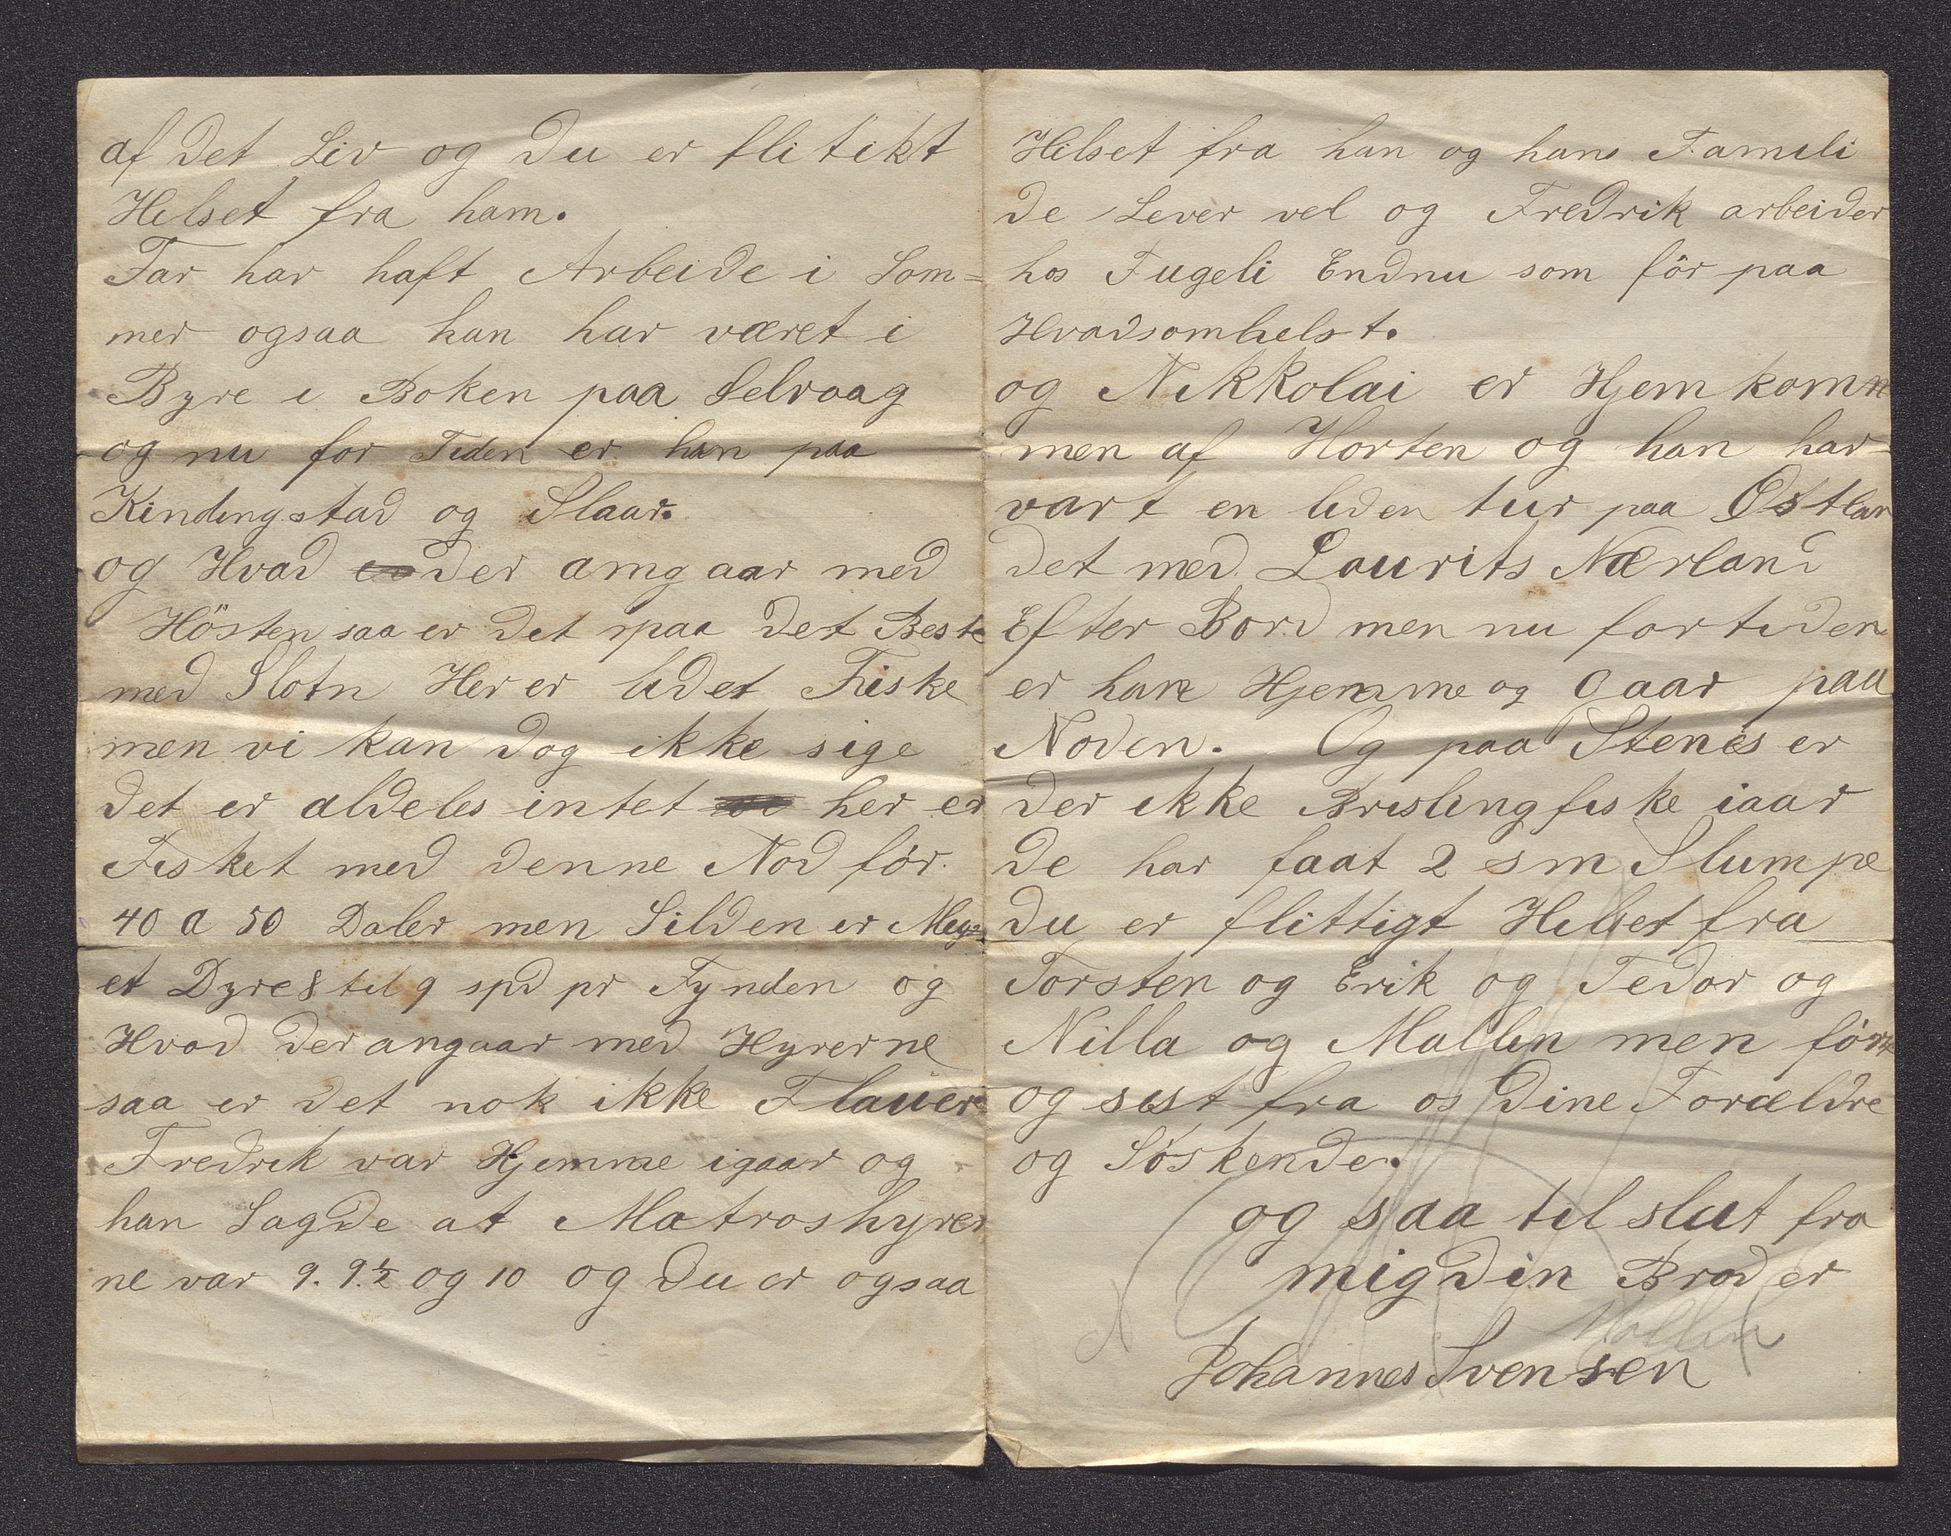 af det Liv og du er flitikt
Hilset fra ham.
Far har haft Arbeide i Som=
mer ogsaa han har været i
Byre i Boken paa Selvaag
og nu for Tiden er han paa
Kindingstad og Slaar.
og Hvad der amgaar med
Hösten saa er det spaa det Beste
med Slotn Her er lidet Fiske
men vi kan dog ikke sige
det er aldeles intet her er
Fisket med denne Nod før
40 a 50 Daler men Silden er Mey=
et Dyre 8 til 9 spd pr Tynden og
Hvad der angaar med Hyrerne
saa er det nok ikke Flauer
Fredrik var Hjemme igaar og
han Sagde at Matroshyrer
ne var 9. 9.½ og 10 og Du er ogsaa
Hilset fra han og hans Fameli
de Lever vel og Fredrik arbeider
hos Fugeli Endnu som før paa
Hvadsomhelst.
og Nikkolai er Hjemkomm
men af Horten og han har
vart en liden tur paa Østlan
det med Laurits Nærland
Efter Bord men nu fortiden
er han Hjemme og Gaar paa
Noden. Og paa Stenes er
der ikke Brislingfiske iaar
de har faat 2 sm Slumpe
Du er flittigt Hilset fra
Torsten og Erik og Tedor og
Nilla og Mallin men først
og sist fra os Dine Forældre
og Søskende.
og saa til slut fra
mig din Broder
Mallin
Johannes Svensen